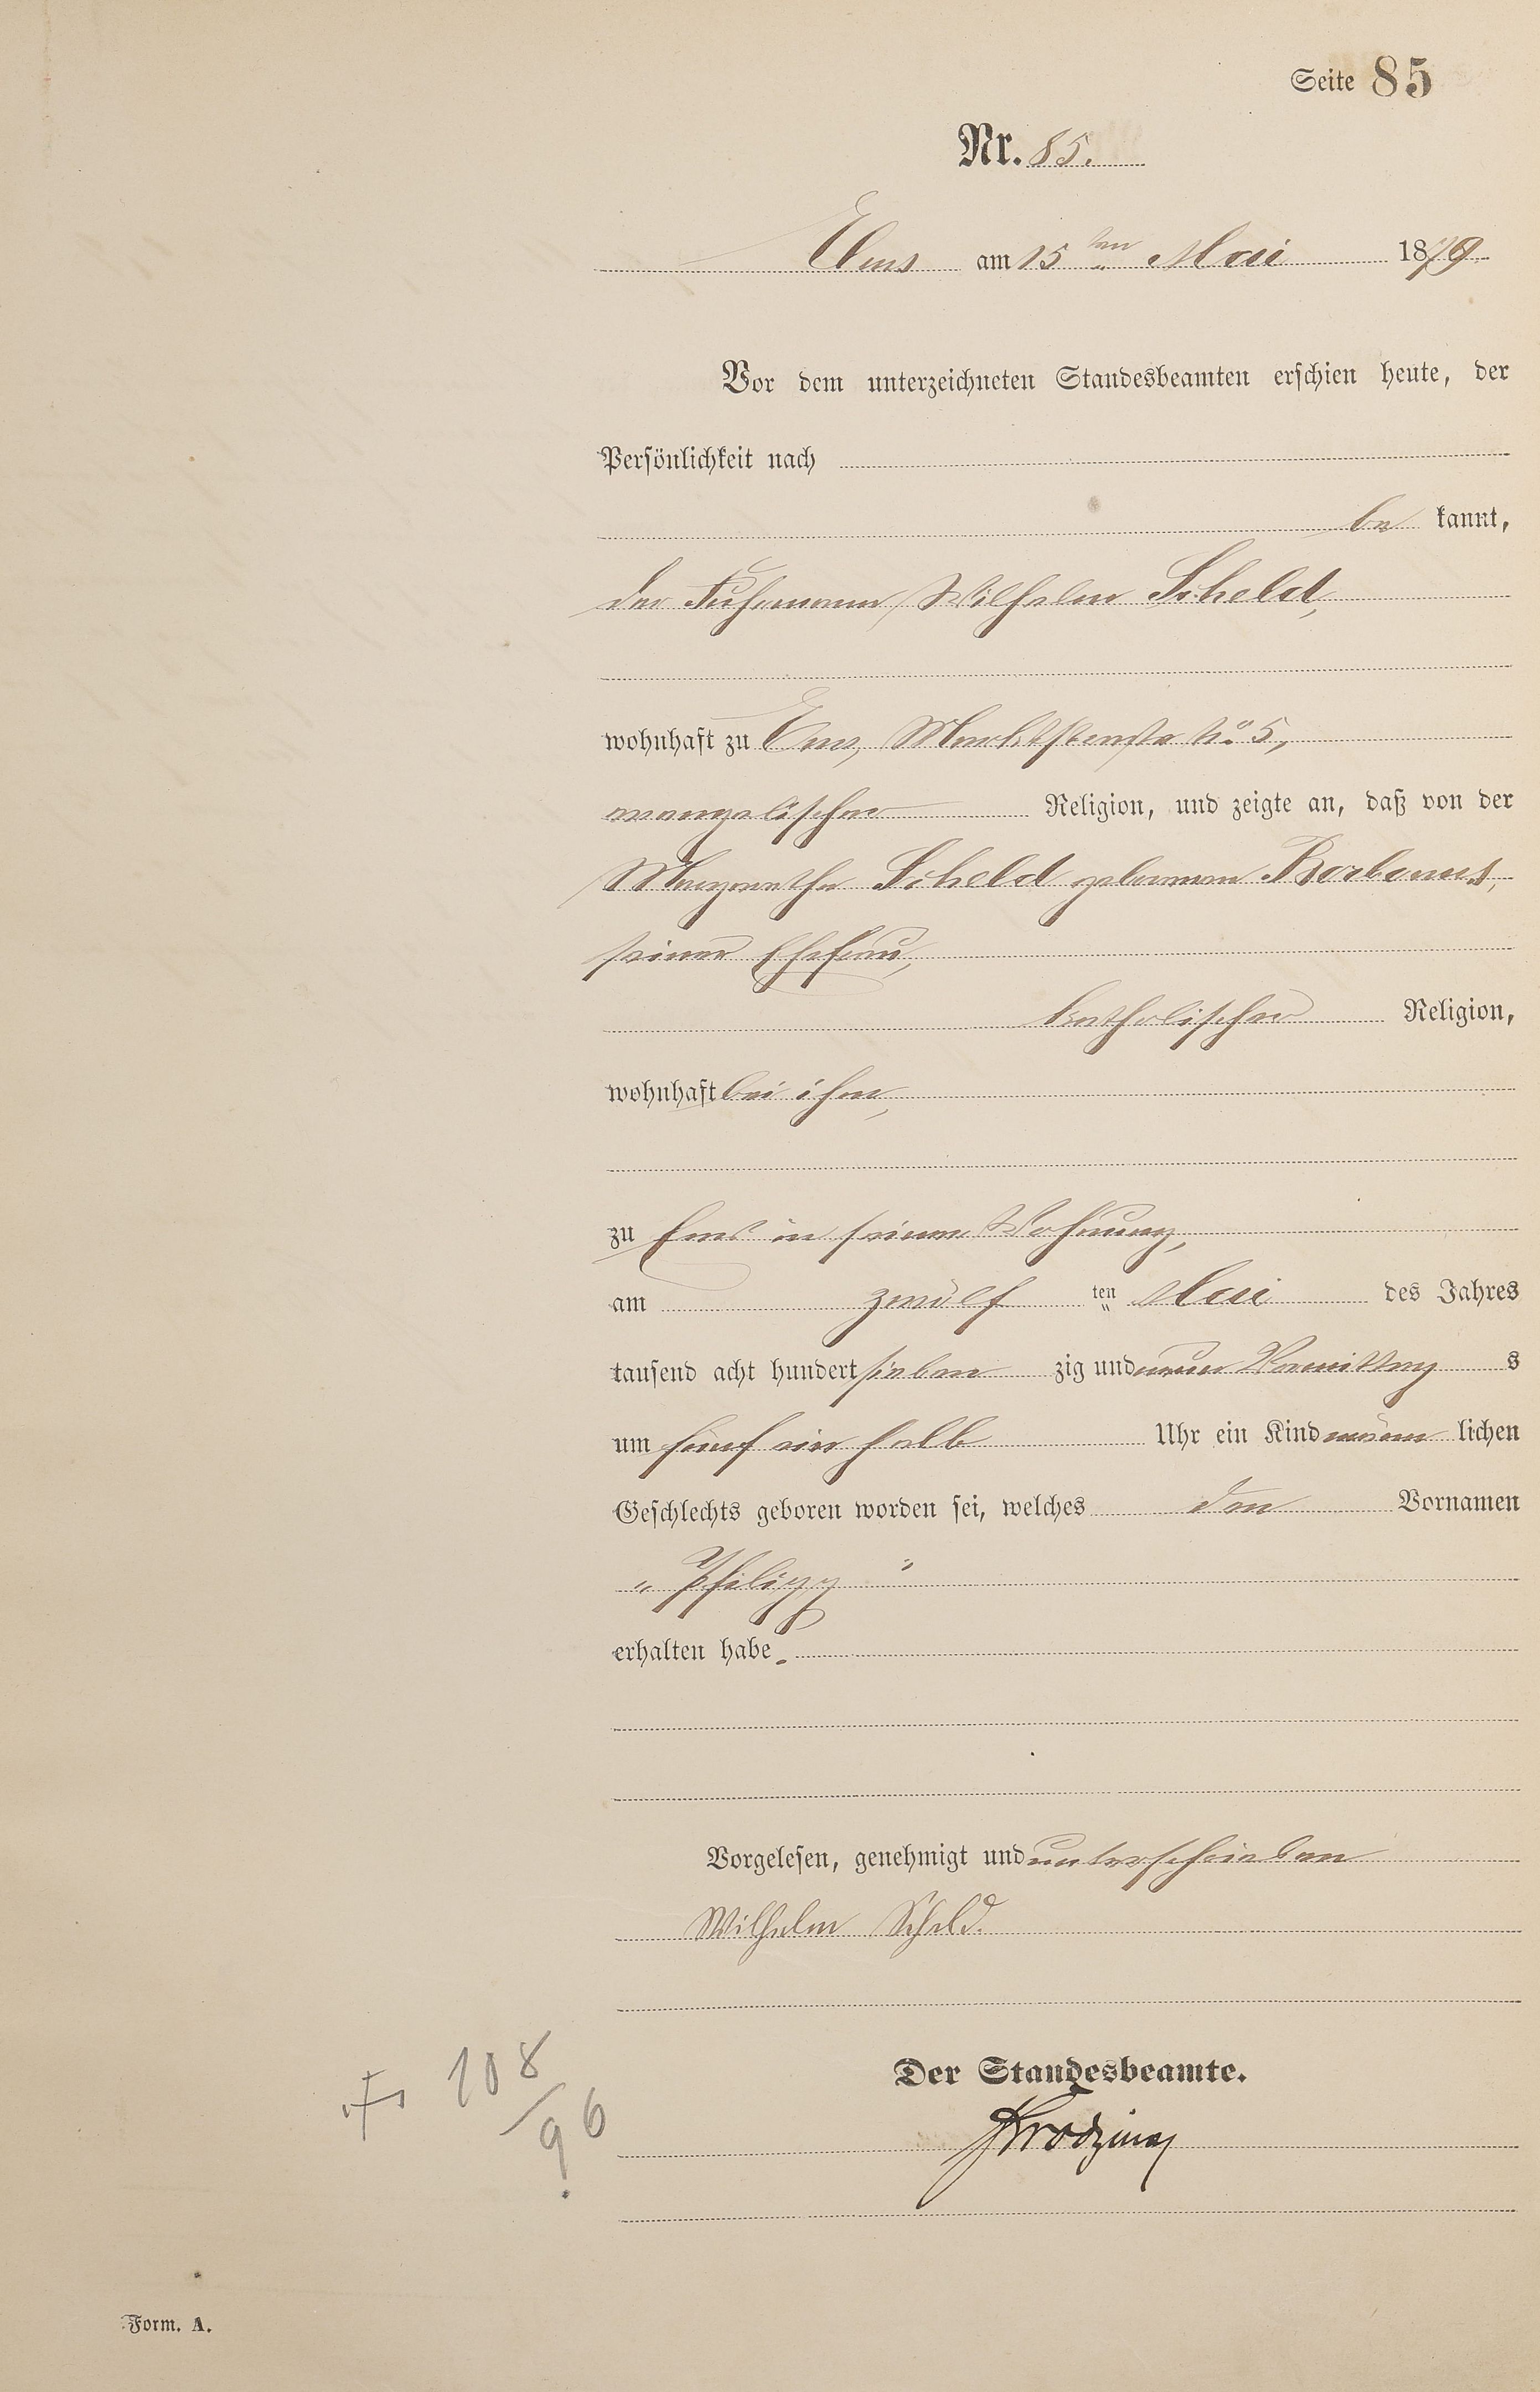 Seite 85
Nr. 85.
Ems am 15ten Mai 1879
Vor dem unterzeichneten Standesbeamten erschien heute, der
Persönlichkeit nach
be kannt,
der Fuhrmann Wilhelm Scheld,
wohnhaft zu Ems, Marktstraße No 5,
evangelischer Religion, und zeigte an, daß von der
Margarethe Scheld geborenen Barbanus,
seiner Ehefrau,
katholischer Religion,
wohnhaft bei ihm,
zu Ems in seiner Wohnung,
am zwölf ten Mai des Jahres
tausend acht hundert sieben zig und neun Vormittag s
um fünf ein halb Uhr ein Kind männ lichen
Geschlechts geboren worden sei, welches den Vornamen
„ Philipp "
erhalten habe.
Vorgelesen, genehmigt und unterschrieben
Wilhelm Scheld.
Der Standesbeamte.
108
96
Form. A.